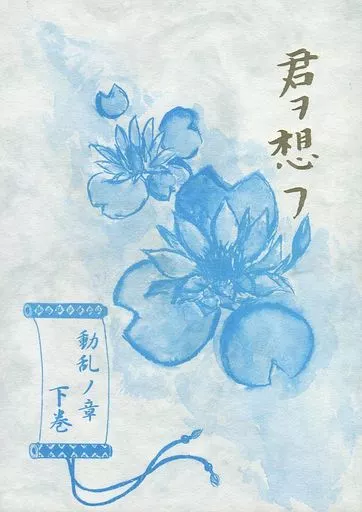 君ヲ想フ
動乱ノ章
下巻